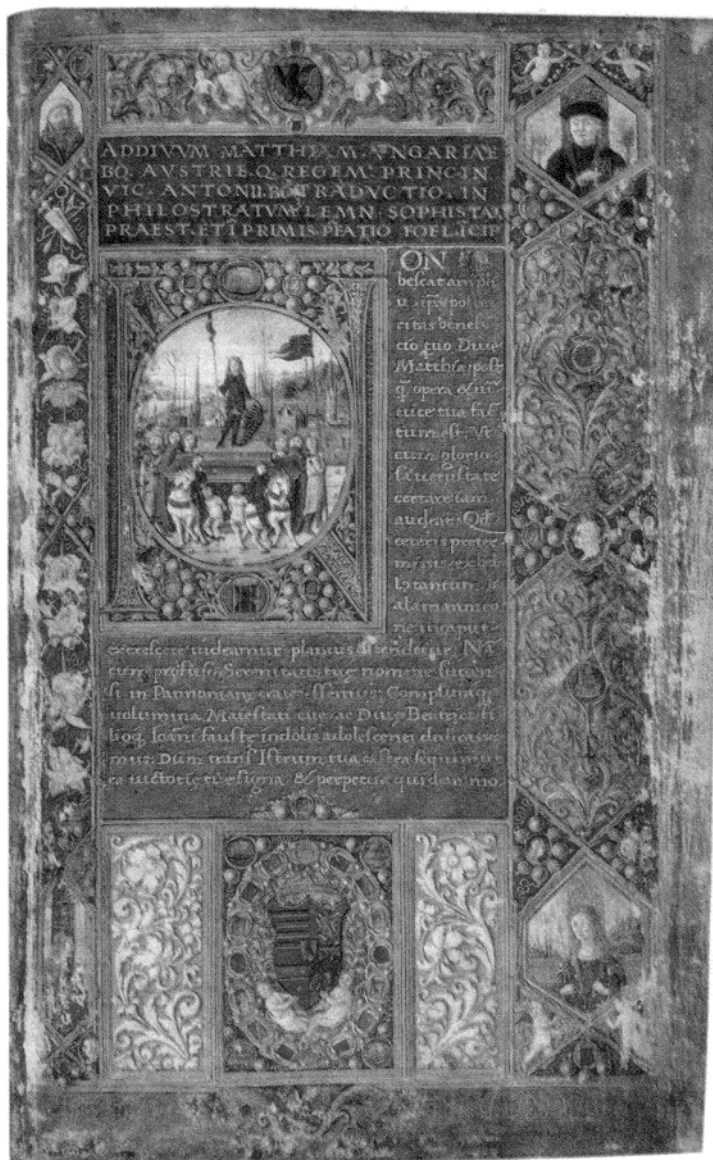 AD DIVVM MATTHI. M. VNGARIAE
BO. AVSTRIE Q. REGEM PRINC. IN
VIC. ANTONII. BO TRADVCTIO. IN
PHILOSTRATVM LEMN. SOPHISTAM
PRAEST. ET I PRIMIS PFATIO FOELICIP
ON
bescat
u
ritatis benefi
cio quo Diue
Matthia post
q̄ opera & uir
tute tua fac
tum est: Vt
cum glorio
sa uetustate
certare iam
audeat: Qd̄
ceteris preter
missis ex
tantum
alamanni
excrescere uideamur planius ostenditur. NĀ
cum Serenitatis tuę nomine
si in Pannoniam essemus: Compluraq;
uolumina Maiestati tuę ac Diuę Beatrici fi
lioq; Ioanni faustę indolis adolescenti dedicasse
mus: Dum trans Istrum tua castra sequimur
uictorie signa & perpetua quidem mo